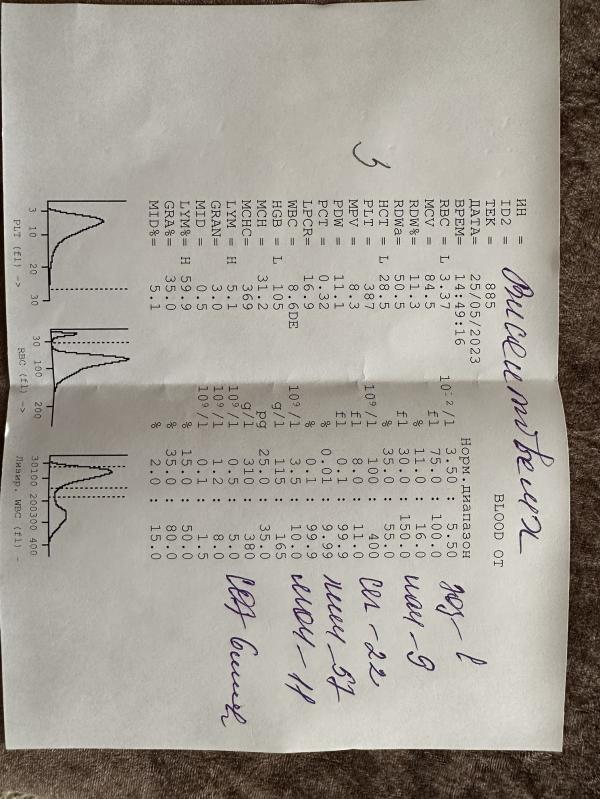 ИН =
ID2 = BLOOD OT
ТЕК = 885
ДАТА= 25/05/2023
ВРЕМ= 14:49:16 Норм.диапазон
RBC = L 3.37 10¹²/l 3.50 : 5.50
MCV = 84.5 fl 75.0 : 100.0
RDW%= 11.3 % 11.0 : 16.0
RDWa= 50.5 fl 30.0 : 150.0
HCT = L 28.5 % 35.0 : 55.0
PLT = 387 10⁹/l 100 : 400
MPV = 8.3 fl 8.0 : 11.0
PDW = 11.1 fl 0.1 : 99.9
PCT = 0.32 % 0.01 : 9.99
LPCR= 16.9 % 0.1 : 99.9
WBC = 8.6DE 10⁹/l 3.5 : 10.0
HGB = L 105 g/l 115 : 165
MCH = 31.2 pg 25.0 : 35.0
MCHC= 369 g/l 310 : 380
LYM = H 5.1 10⁹/l 0.5 : 5.0
GRAN= 3.0 10⁹/l 1.2 : 8.0
MID = 0.5 10⁹/l 0.1 : 1.5
LYM%= H 59.9 % 15.0 : 50.0
GRA%= 35.0 % 35.0 : 80.0
MID%= 5.1 % 2.0 : 15.0
- 9
- 22
- 57
мон - 11
3 10 20 30
PLT (fl) ->
30 100 200
RBC (fl) ->
30100 200300 400
Лизир. WBC (fl) -